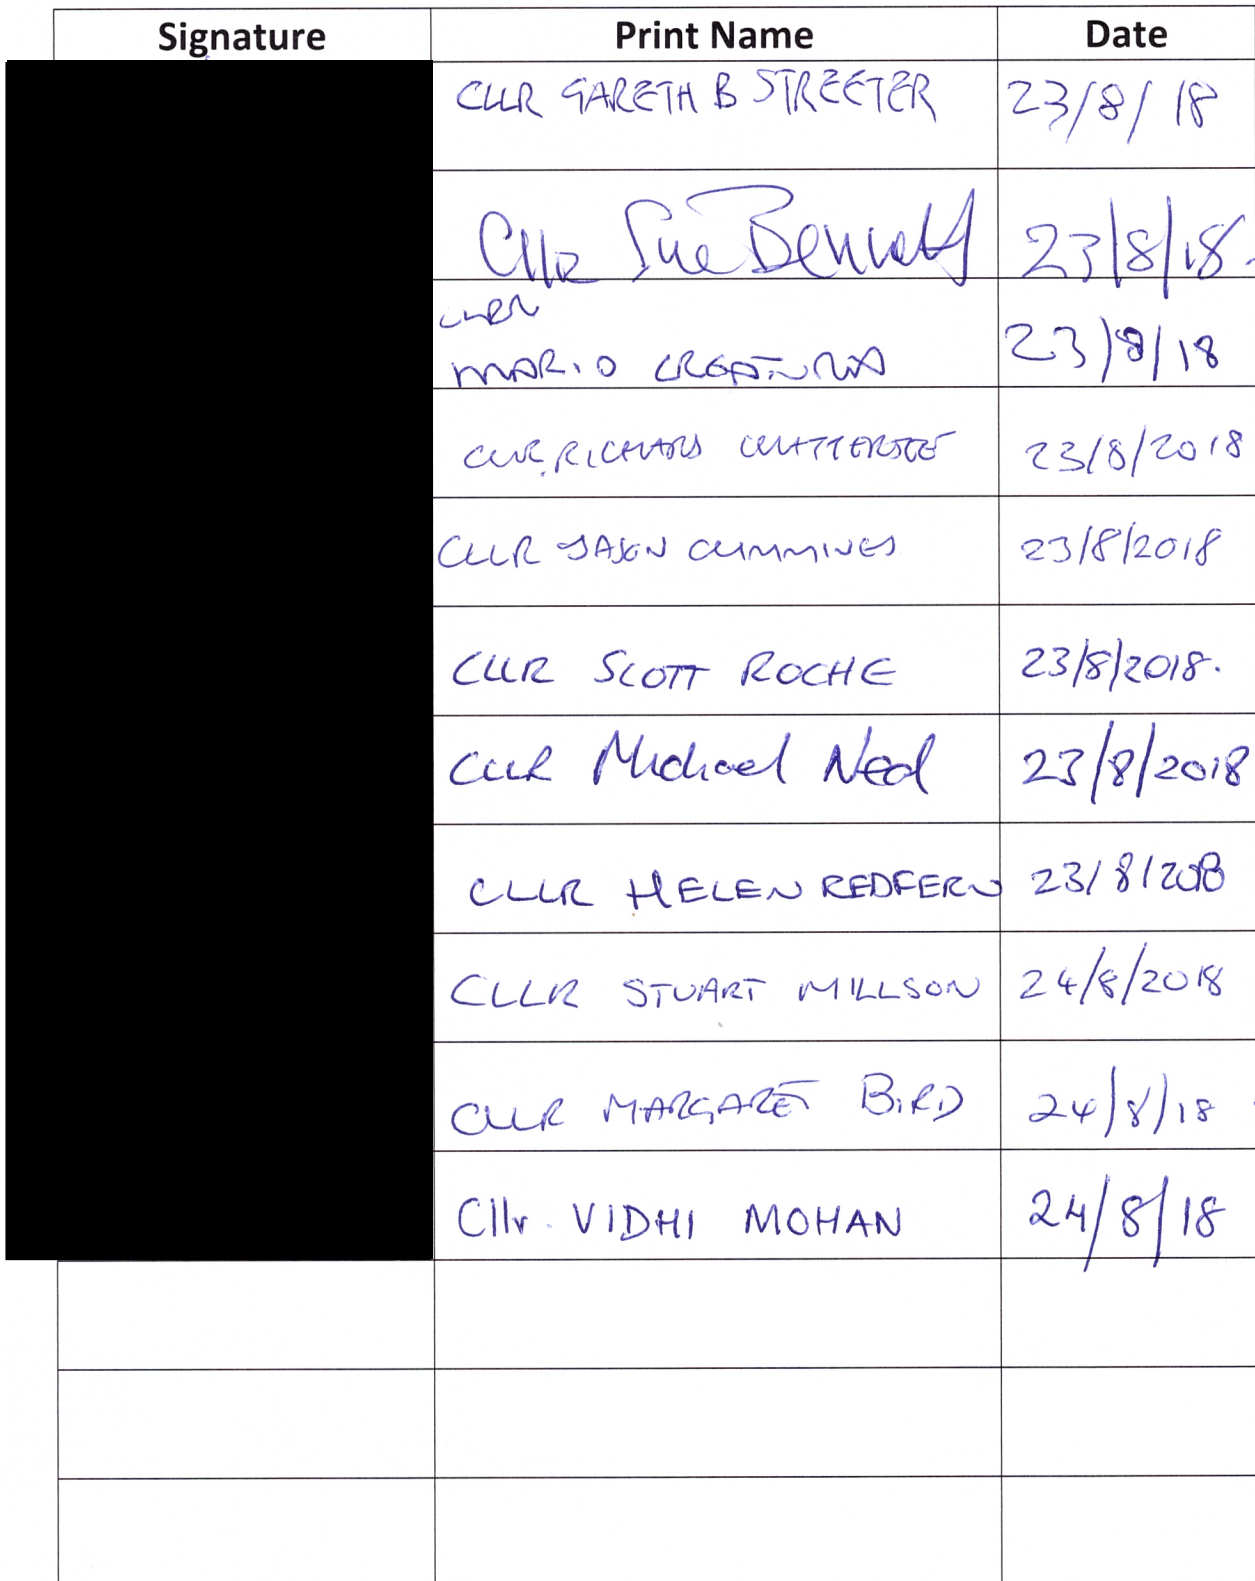 Signature Print Name Date
CLLR GARETH B STREETER 23/8/18
Cllr Sue Bennett 23/8/18.
CLLR
MARIO CREATURA 23/8/18
CLLR RICHARD CHATTERJEE 23/8/2018
CLLR JASON CUMMINGS 23/8/2018
CLLR SCOTT ROCHE 23/8/2018.
CLLR Michael Neal 23/8/2018
CLLR HELEN REDFERN 23/8/2018
CLLR STUART MILLSON 24/8/2018
CLLR MARGARET BIRD 24/8/18
Cllr. VIDHI MOHAN 24/8/18